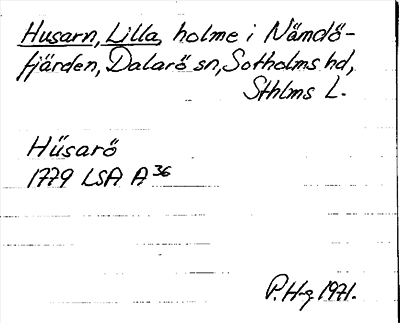 Husarn, Lilla, holme i Nämdö-
fjärden, Dalarö sn, Sotholms hd,
Sthlms L.
Húsarö
1779 LSA A 36
P. H-g 1971.